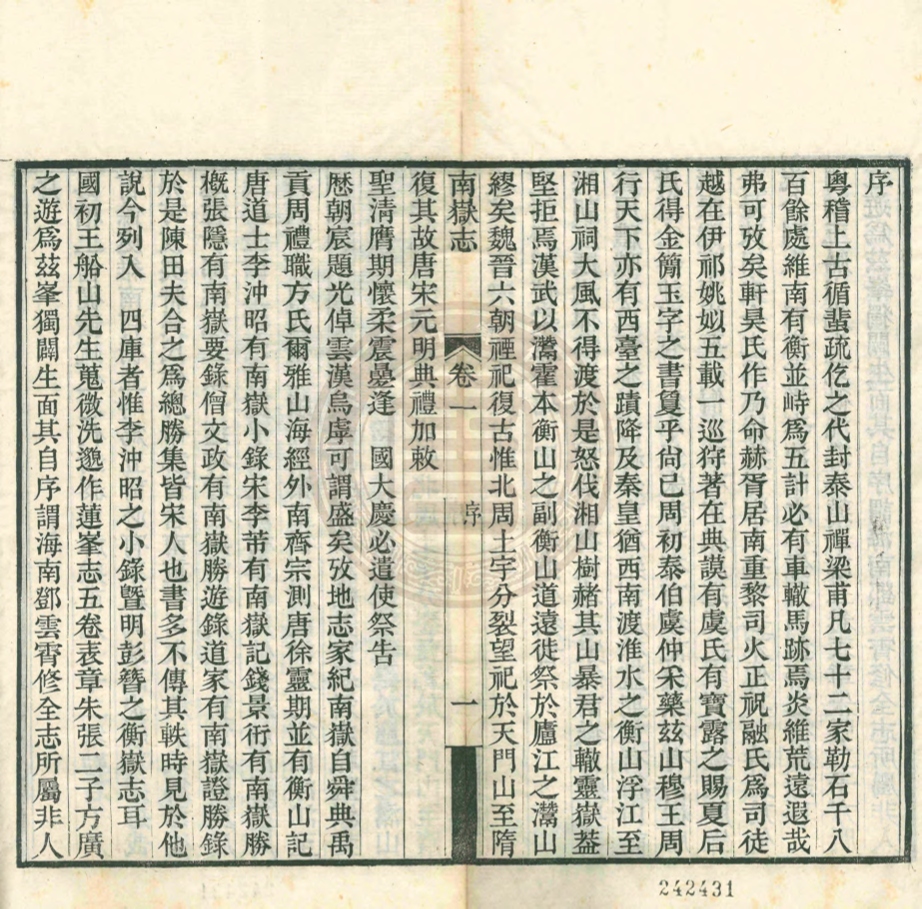 序
粵稽上古循蜚疏仡之代封泰山禪梁甫凡七十二家勒石千八
百餘處維南有衡並峙爲五計必有車轍馬跡焉炎維荒遠遐哉
弗可攷矣軒昊氏作乃命赫胥居南重黎司火正祝融氏爲司徒
越在伊祁姚姒五載一巡狩著在典謨有虞氏有寶露之賜夏后
氏得金簡玉字之書夐乎尙已周初泰伯虞仲采藥茲山穆王周
行天下亦有西臺之蹟降及秦皇猶西南渡淮水之衡山浮江至
湘山祠大風不得渡於是怒伐湘山樹赭其山暴君之轍靈嶽葢
堅拒焉漢武以灊霍本衡山之副衡山道遠徙祭於廬江之灊山
繆矣魏晉六朝禋祀復古惟北周土宇分裂望祀於天門山至隋
南嶽志 卷一 序 一
復其故唐宋元明典禮加敕
聖清膺期懷柔震曡逢 國大慶必遣使祭告
歷朝宸題光倬雲漢烏虖可謂盛矣攷地志家紀南嶽自舜典禹
貢周禮職方氏爾雅山海經外南齊宗測唐徐靈期並有衡山記
唐道士李沖昭有南嶽小錄宋李芾有南嶽記錢景衎有南嶽勝
概張隱有南嶽要錄僧文政有南嶽勝遊錄道家有南嶽證勝錄
於是陳田夫合之爲總勝集皆宋人也書多不傳其軼時見於他
說今列入 四庫者惟李沖昭之小錄曁明彭簪之衡嶽志耳
國初王船山先生蒐微洗邈作蓮峯志五卷表章朱張二子方廣
之遊爲茲峯獨闢生面其自序謂海南鄧雲霄修全志所屬非人
242431